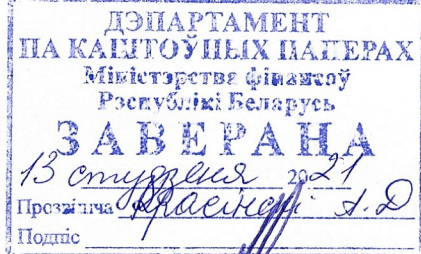 ДЭПАРТАМЕНТ
ПА КАШТОЎНЫХ ПАПЕРАХ
Міністэрства фінансаў
Рэспублікі Беларусь
ЗАВЕРАНА
13 студзеня 2021
Прозвішча Красінскі А.Д
Подпіс